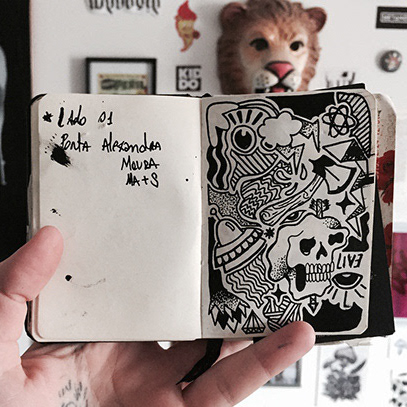 * LADO 01
Ponta Alexandra
MOURA
MA+S
KID
DO
EVIL